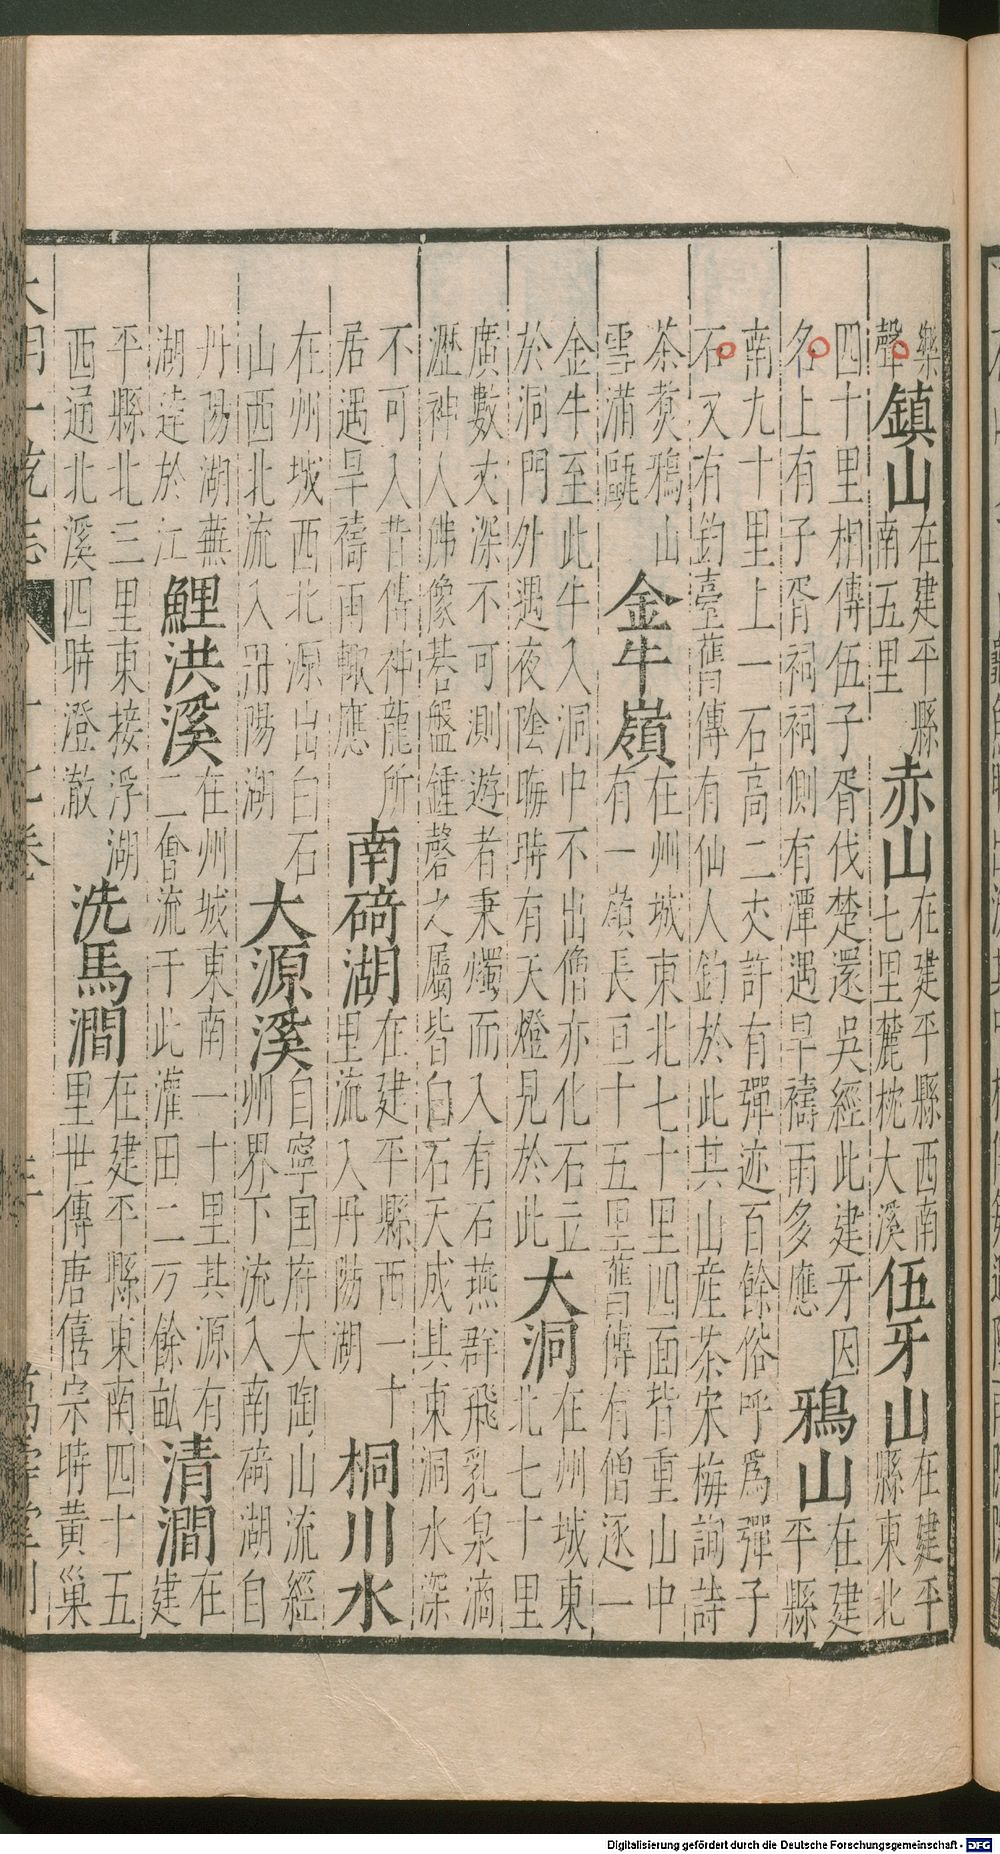 樂
聲
鎮山
在建平縣
南五里
赤山
在建平縣西南
七里麓枕大溪
伍牙山
在建平
縣東北
四十里相傳伍子胥伐楚還吳經此建牙因
名上有子胥祠祠側有潭遇旱禱雨多應
鴉山
在建
平縣
南九十里上一石高二丈許有彈迹百餘俗呼爲彈子
石又有釣臺舊傳有仙人釣於此其山産茶宋梅詢詩
茶煑鴉山
雪滿甌
金牛嶺
在州城東北七十里四面皆重山中
有一嶺長亘十五里舊傳有僧逐一
金牛至此牛入洞中不出僧亦化石立
於洞門外遇夜陰晦時有天燈見於此
大洞
在州城東
北七十里
廣數丈深不可測遊者秉燭而入有石燕群飛乳泉滴
瀝神人佛像碁盤鍾磬之屬皆白石天成其東洞水深
不可入昔傳神龍所
居遇旱禱雨輙應
南碕湖
在建平縣西一十
里流入丹陽湖
桐川水
在州城西北源出白石
山西北流入丹陽湖
大源溪
自寧国府大陶山流經
州界下流入南碕湖自
丹陽湖蕪
湖逹於江
鯉洪溪
在州城東南一十里其源有
二㑹流于此灌田二万餘畝
清澗
在
建
平縣北三里東接浮湖
西通北溪四時澄澈
洗馬澗
在建平縣東南四十五
里世傳唐僖宗時黄巢
大明一統志
十七卷
萬壽堂刊
Digitalisierung gefördert durch die Deutsche Forschungsgemeinschaft - DFG